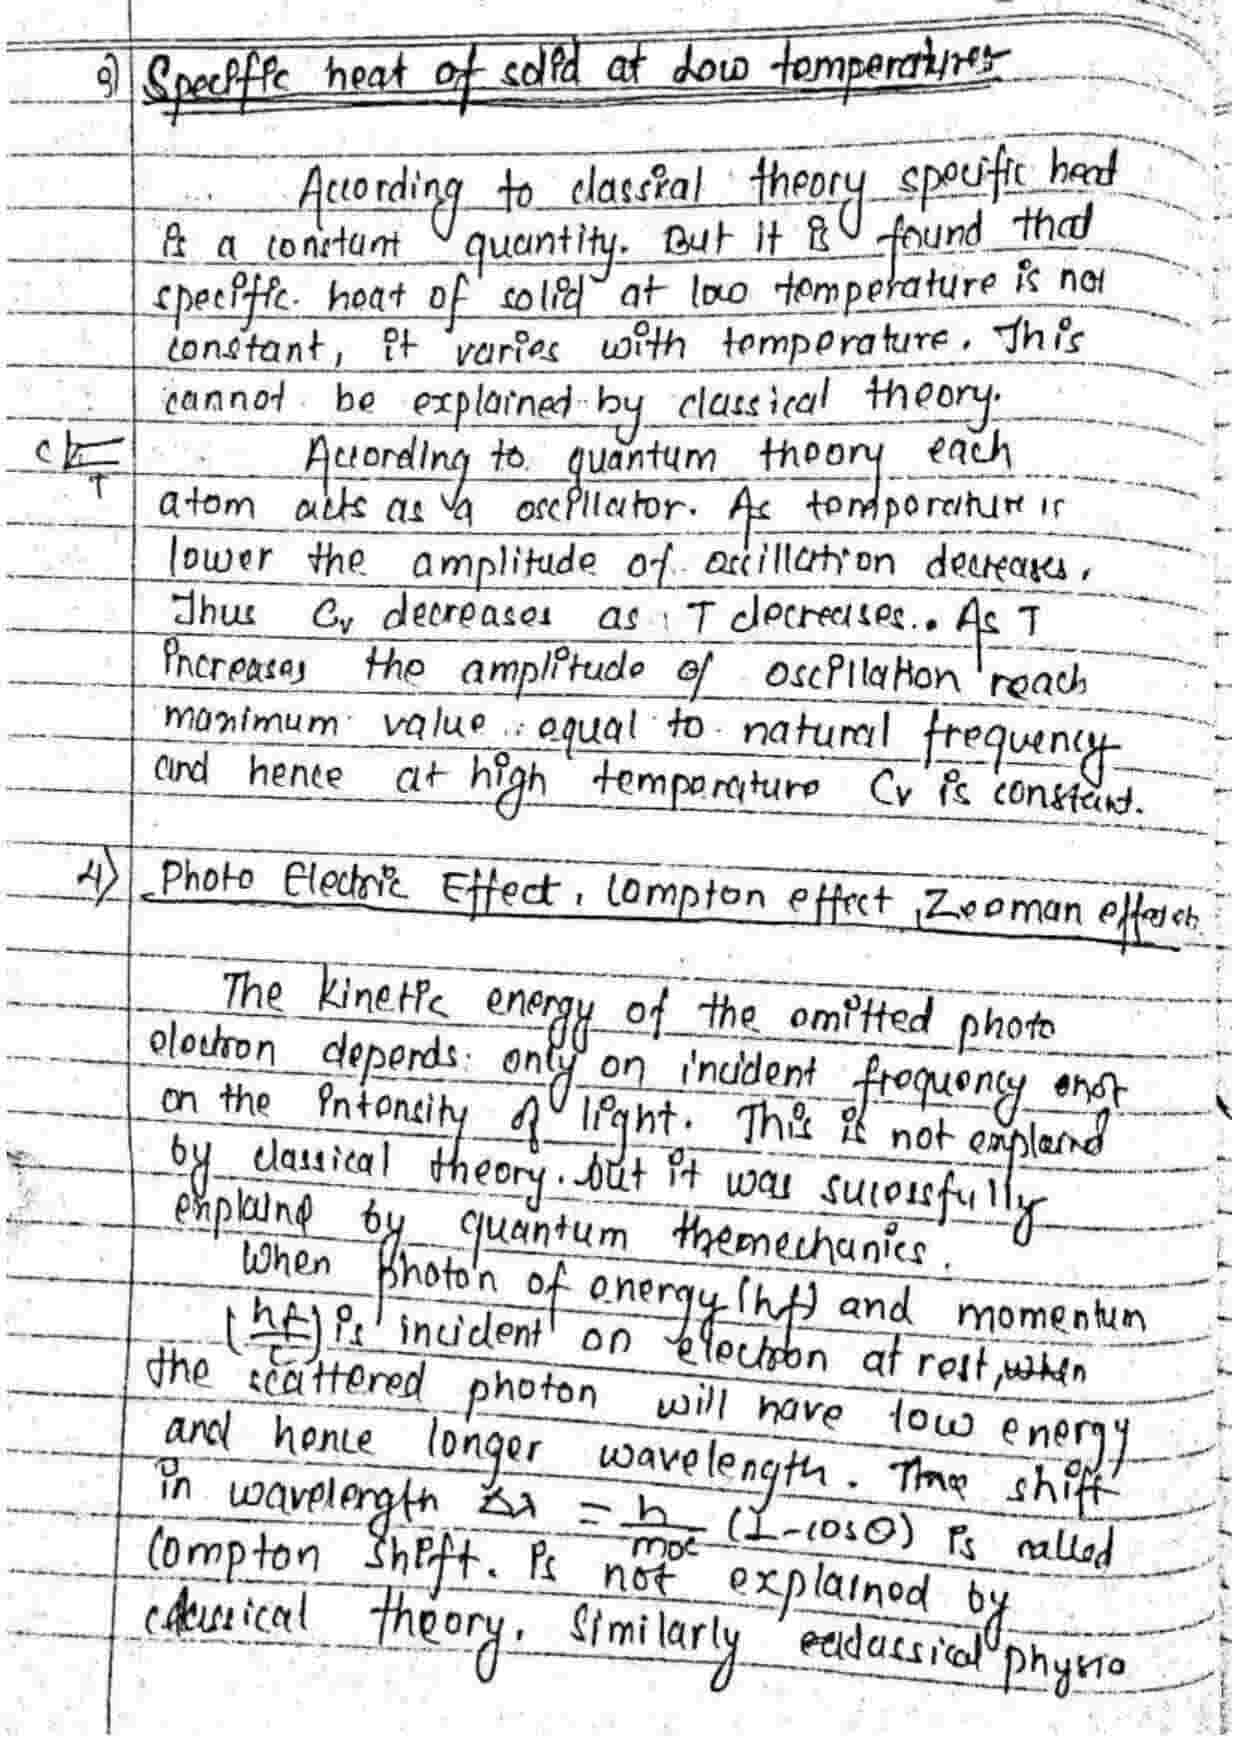 3) Specific heat of solid at Low temperatures
According to classical theory specific head
is a constant quantity. But it is found that
specific. heat of solid at low temperature is not
constant, it varies with temperature. This
cannot be explained by classical theory.
C
T
According to quantum theory each
atom acts as a oscillator. As temperature is
lower the amplitude of oscillation decreases,
Thus Cv decreases as T decreases.. As T
increases the amplitude of oscillation reach
maximum value equal to natural frequency
and hence at high temperature Cv is constant.
4) Photo Electric Effect, Compton effect, Zeeman effect
The kinetic energy of the emitted photo
electron depends only on incident frequency not
on the intensity of light. This is not explained
by classical theory. but it was sucessfully
explaine by quantum themechanics.
When photon of energy (hf) and momentum
(hf/c) is incident on electron at rest,
the scattered photon will have low energy
and hence longer wavelength. The shift
in wavelength Δλ = h/moc (1-cosθ) is called
Compton shift. is not explained by
classical theory. Similarly classical physic